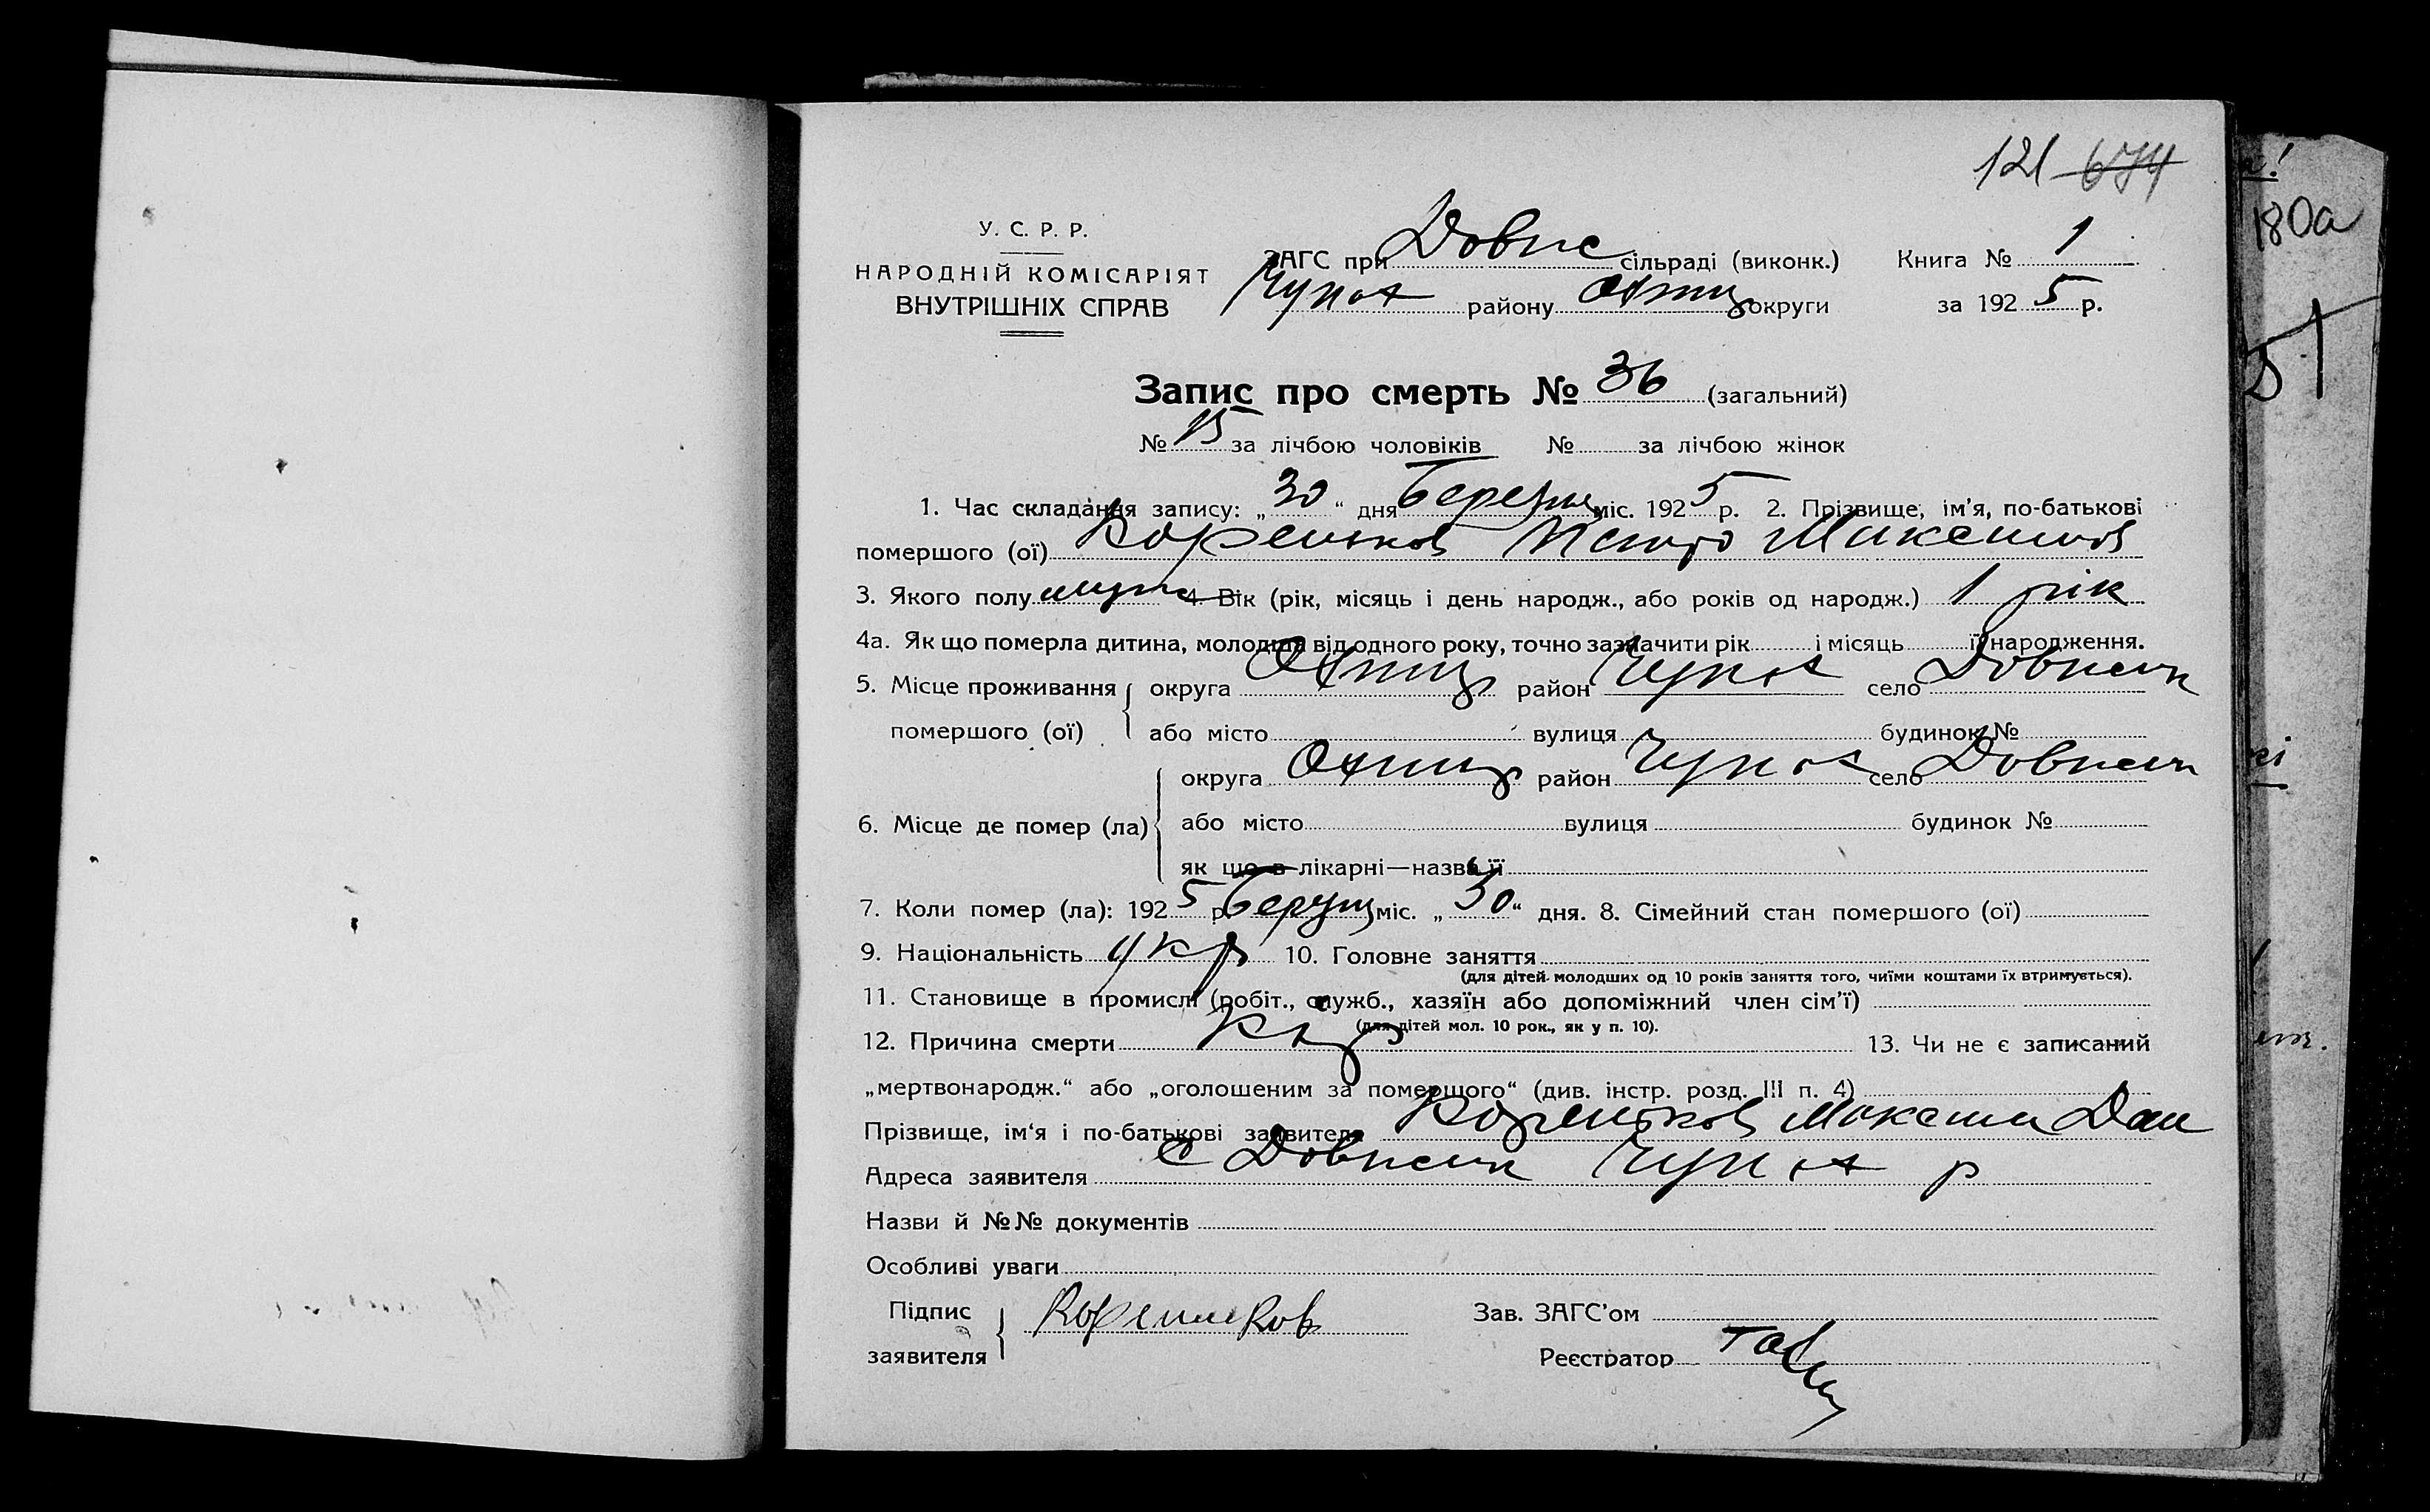 121 674
У. С. Р. Р.
НАРОДНІЙ КОМІСАРІЯТ
ВНУТРІШНІХ СПРАВ
ЗАГС при Довж сільраді (виконк.)
Чупах району Охтир округи
Книга № 1
за 1925 р.
Запис про смерть № 36 (загальний)
№ 15 за лічбою чоловіків № за лічбою жінок
1. Час складання запису: „30“ дня Березня міс. 1925 р. 2. Прізвище, ім'я, по-батькові
помершого (ої) Кореньков Петро Максимов
3. Якого полу муж 4. Вік (рік, місяць і день народж., або років од народж.) 1 рік
4а. Як що померла дитина, молодша від одного року, точно зазначити рік і місяць її народження.
5. Місце проживання помершого (ої) округа Охтир район Чупах село
або місто вулиця будинок №
6. Місце де помер (ла) округа Охтир район Чупах село
або місто вулиця будинок №
як що в лікарні—назва її
7. Коли помер (ла): 1925 р. міс. „30“ дня. 8. Сімейний стан помершого (ої)
9. Національність укр 10. Головне заняття
(для дітей молодших од 10 років заняття того, чиїми коштами їх втримується).
11. Становище в промислі (робіт., служб., хазяїн або допоміжний член сім'ї)
(для дітей мол. 10 рок., як у п. 10).
12. Причина смерти Кір 13. Чи не є записаний
„мертвонародж.“ або „оголошеним за помершого“ (див. інстр. розд. III п. 4)
Прізвище, ім'я і по-батькові заявителя Кореньков Максим Дан
Адреса заявителя с Чупах р
Назви й №№ документів
Особливі уваги
Підпис заявителя Кореньков
Зав. ЗАГС'ом
Реєстратор
180а